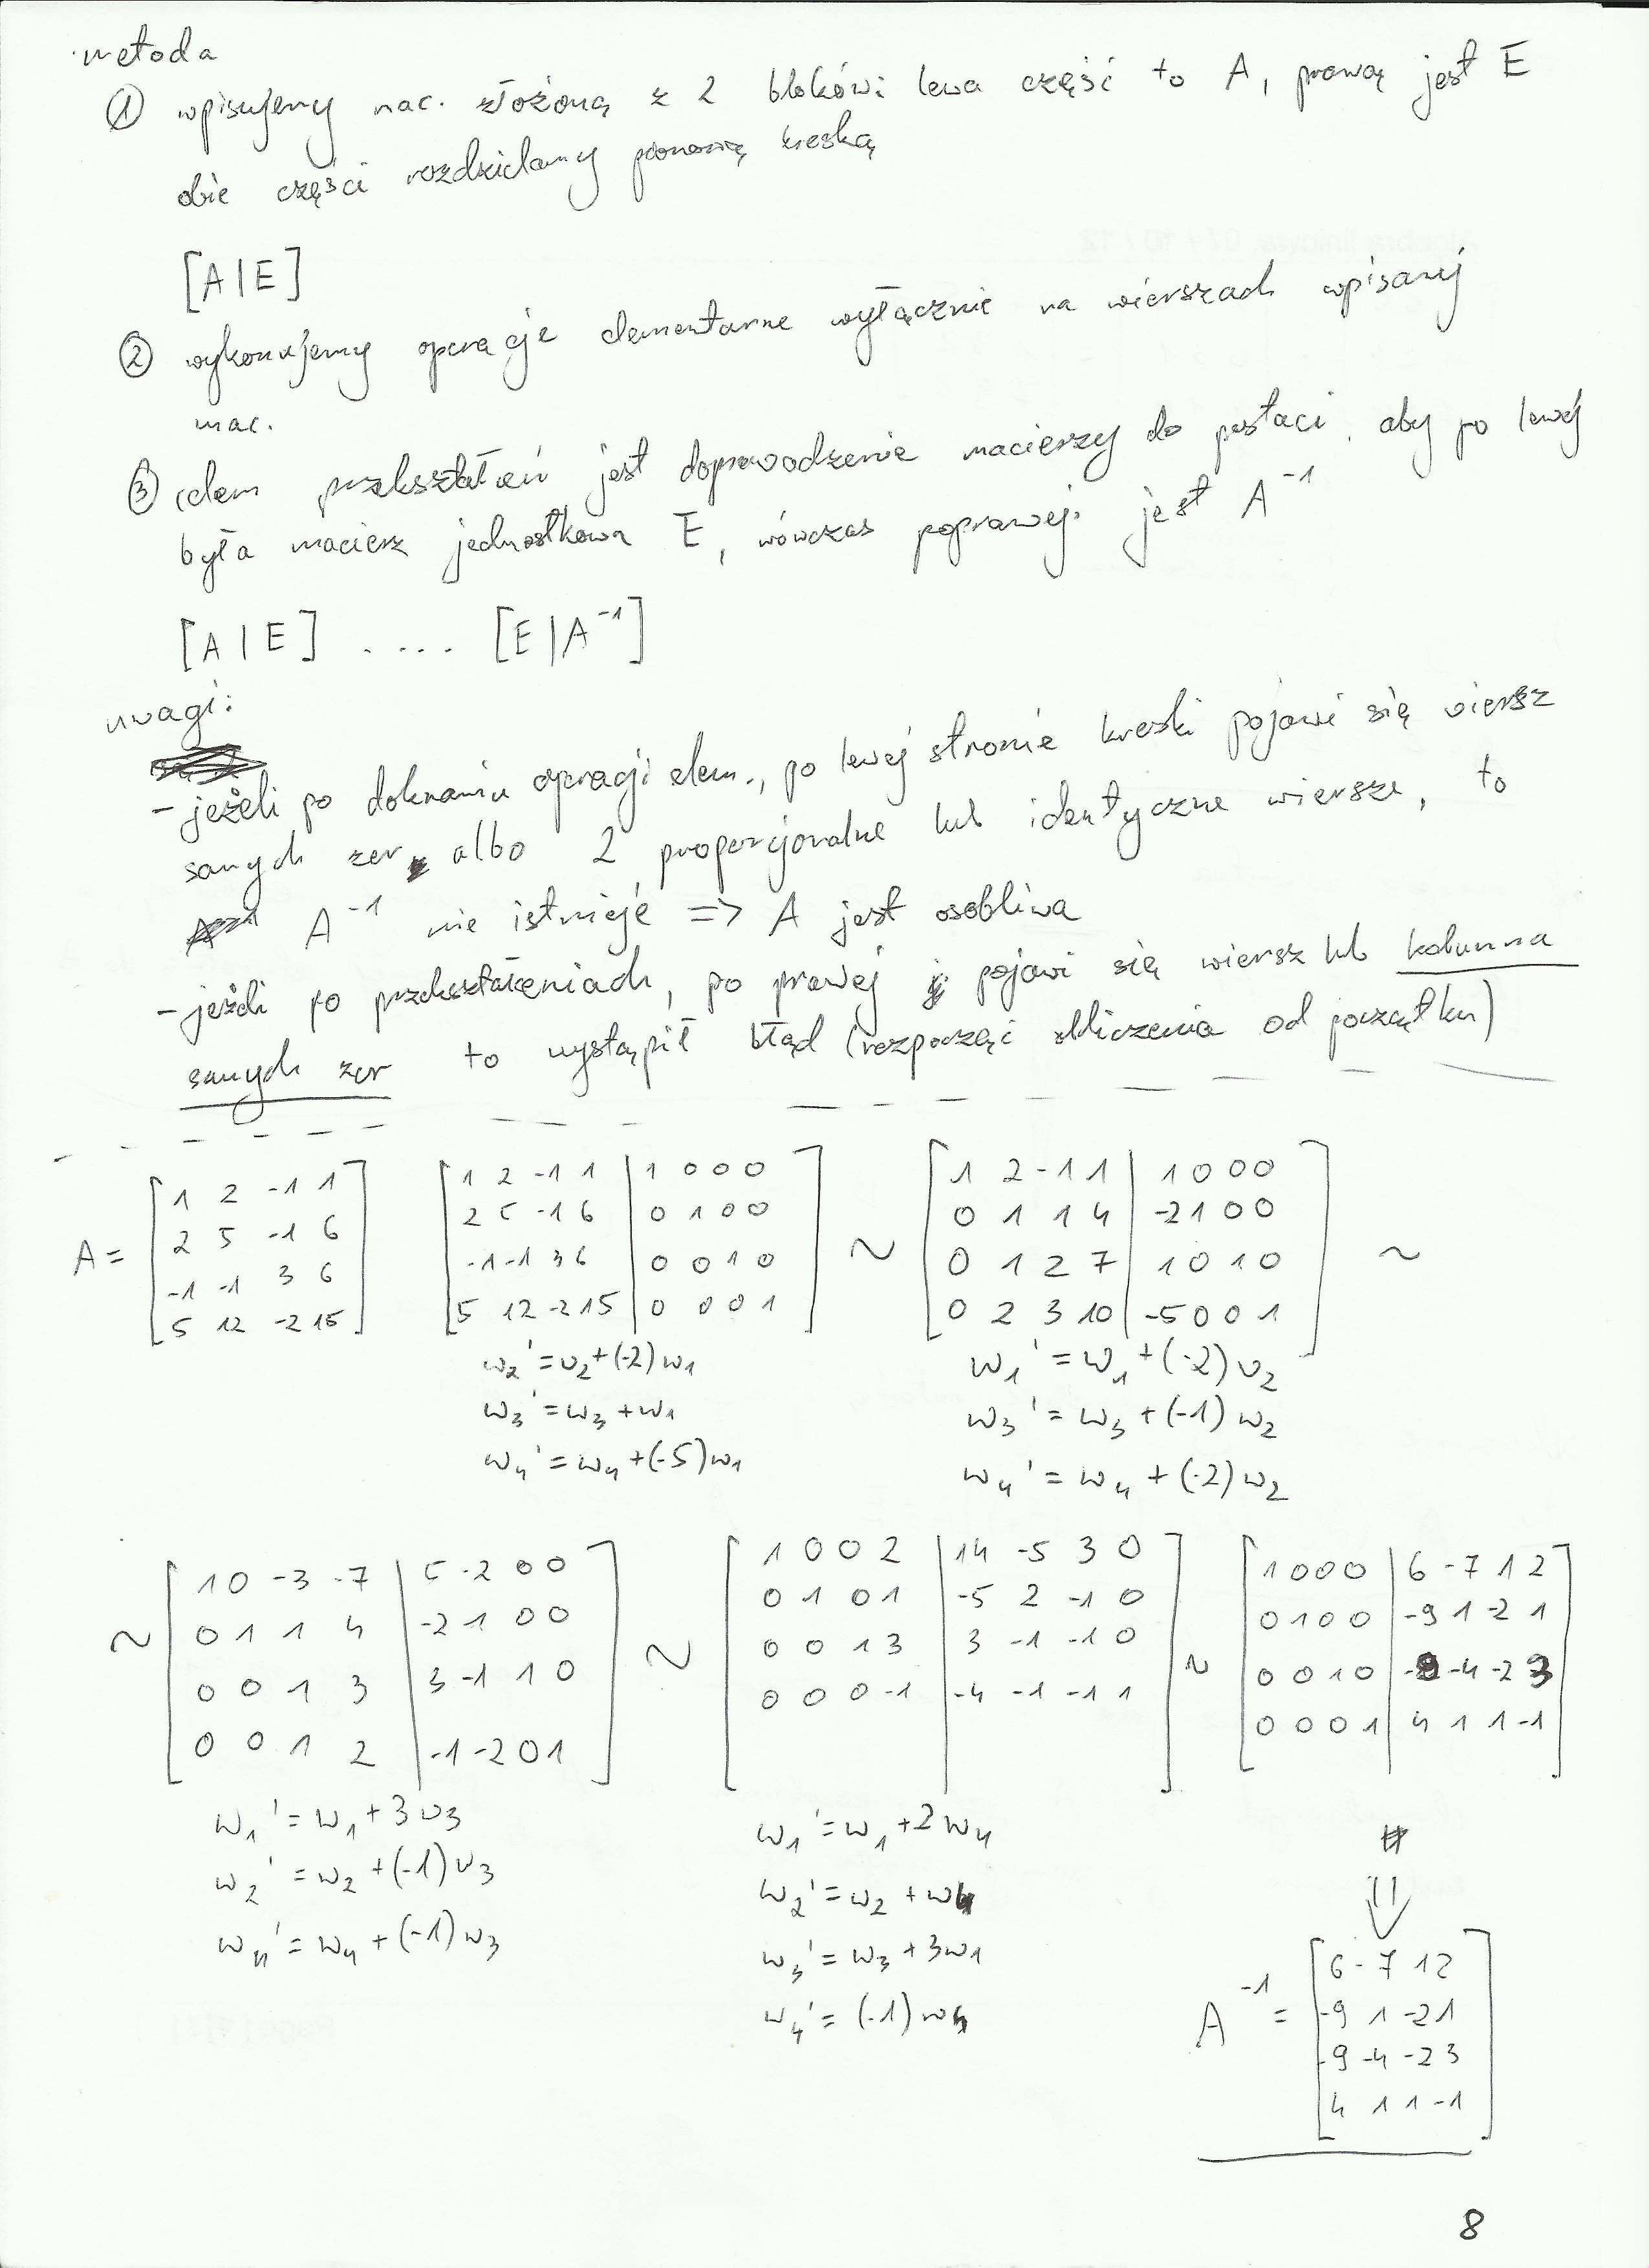 metoda
① wpisujemy mac. złożoną z 2 bloków: lewa część to A, prawą jest E
obie części rozdzielamy pionową kreską
[A|E]
② wykonujemy operacje elementarne wyłącznie na wierszach wpisanej
mac.
③ celem przekształceń jest doprowadzenie macierzy do postaci, aby po lewej
była macierz jednostkowa E, wówczas po prawej jest A⁻¹
[A|E] .... [E|A⁻¹]
uwagi:
- jeżeli po dokonaniu operacji elem., po lewej stronie kreski pojawi się wiersz
samych zer albo 2 proporcjonalne lub identyczne wiersze, to
A⁻¹ nie istnieje => A jest osobliwa
- jeżeli po przekształceniach, po prawej pojawi się wiersz lub kolumna
samych zer to wystąpił błąd (rozpocząć obliczenia od początku)
A = [1 2 -1 1 [1 2 -1 1 | 1 0 0 0 [1 2 -1 1 | 1 0 0 0
2 5 -1 6 2 5 -1 6 | 0 1 0 0 0 1 1 4 | -2 1 0 0
-1 -1 3 6 -1 -1 3 6 | 0 0 1 0 ~ 0 1 2 7 | 1 0 1 0 ~
5 12 -2 15] 5 12 -2 15 | 0 0 0 1] 0 2 3 10 | -5 0 0 1]
w₂' = w₂+(-2)w₁ w₁' = w₁+(-2)w₂
w₃' = w₃+w₁ w₃' = w₃+(-1)w₂
w₄' = w₄+(-5)w₁ w₄' = w₄+(-2)w₂
[1 0 -3 -7 | 5 -2 0 0 [1 0 0 2 | 14 -5 3 0 [1 0 0 0 | 6 -7 1 2
~ 0 1 1 4 | -2 1 0 0 ~ 0 1 0 1 | -5 2 -1 0 ~ 0 1 0 0 | -9 1 -2 1
0 0 1 3 | 3 -1 1 0 0 0 1 3 | 3 -1 -1 0 0 0 1 0 | -9 -4 -2 3
0 0 1 2 | -1 -2 0 1] 0 0 0 -1 | -4 -1 -1 1] 0 0 0 1 | 4 1 1 -1]
w₁' = w₁+3w₃ w₁' = w₁+2w₄
w₂' = w₂+(-1)w₃ w₂' = w₂+w₄
w₄' = w₄+(-1)w₃ w₃' = w₃+3w₁
w₄' = (-1)w₄
⇓
A⁻¹ = [6 -7 1 2
-9 1 -2 1
-9 -4 -2 3
4 1 1 -1]
8